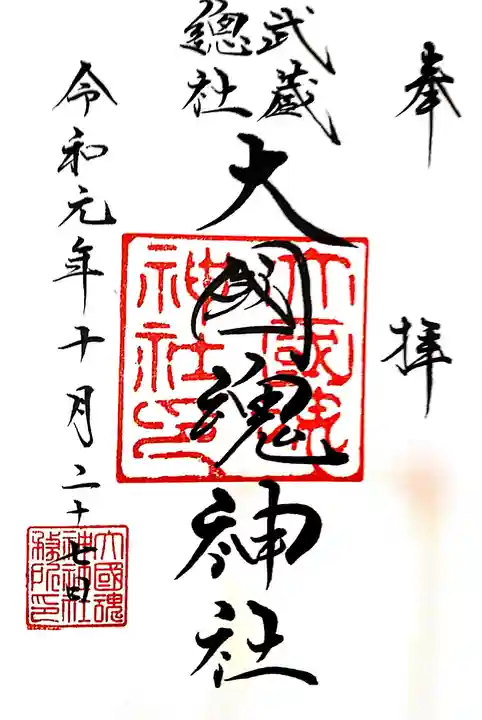 奉拝
武蔵
總社
大國魂神社
大國魂
神社印
令和元年十月二十七日
大國魂
神社社
務所印